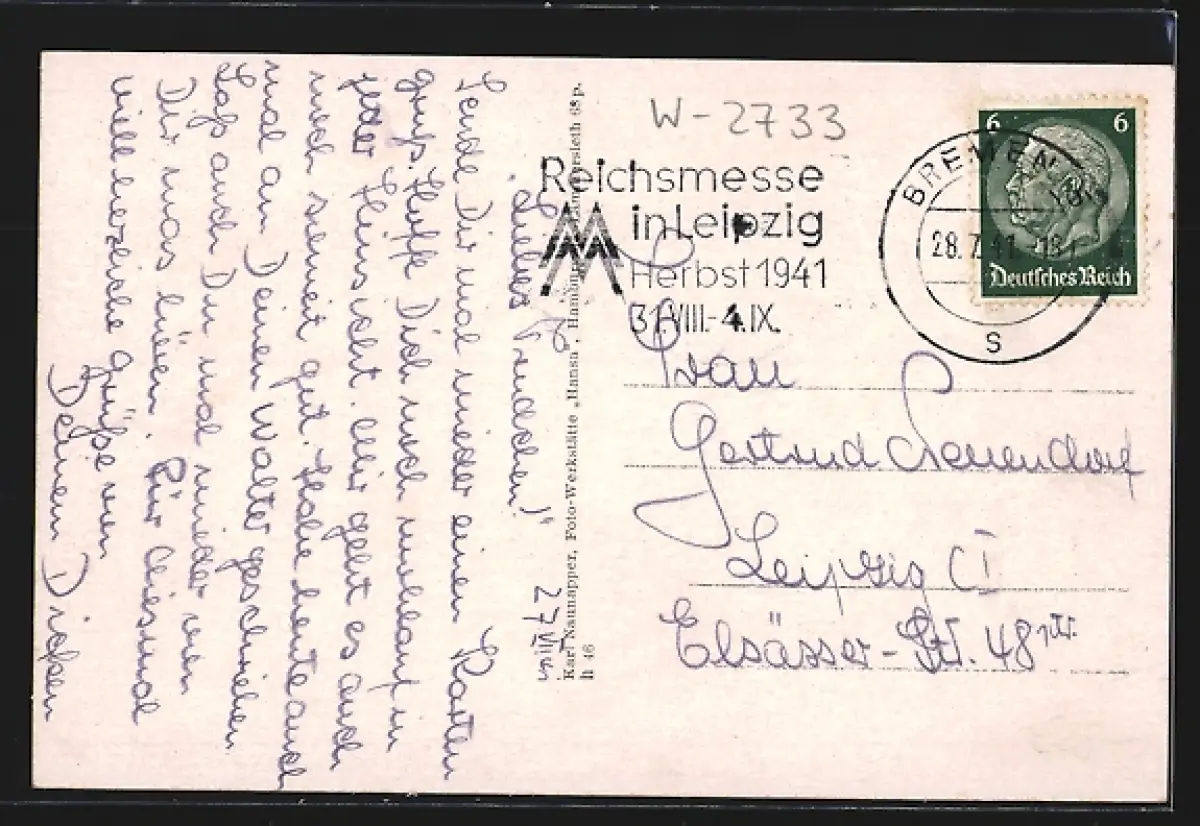 27.VII.41
Liebes Trudchen!
Sende Dir mal wieder einen Karten
gruß. Hoffe Dich noch wohlauf in
jeder Hinsicht. Mir geht es auch
noch soweit gut. Habe heute auch
mal an Deinen Walter geschrieben
Laß auch Du mal wieder von
Dir was hören. Für diesmal
viel herzliche Grüße von
Deinem
Karl Naunapper, Foto-Werkstätte „Hansa", Hamburg
h 46
W-2733
Reichsmesse
in Leipzig
Herbst 1941
31.VIII.-4.IX.
BREMEN
28.7.41
S
6 6
Deutsches Reich
Frau
Gertrud
Leipzig C1
Elsässer-Str. 48